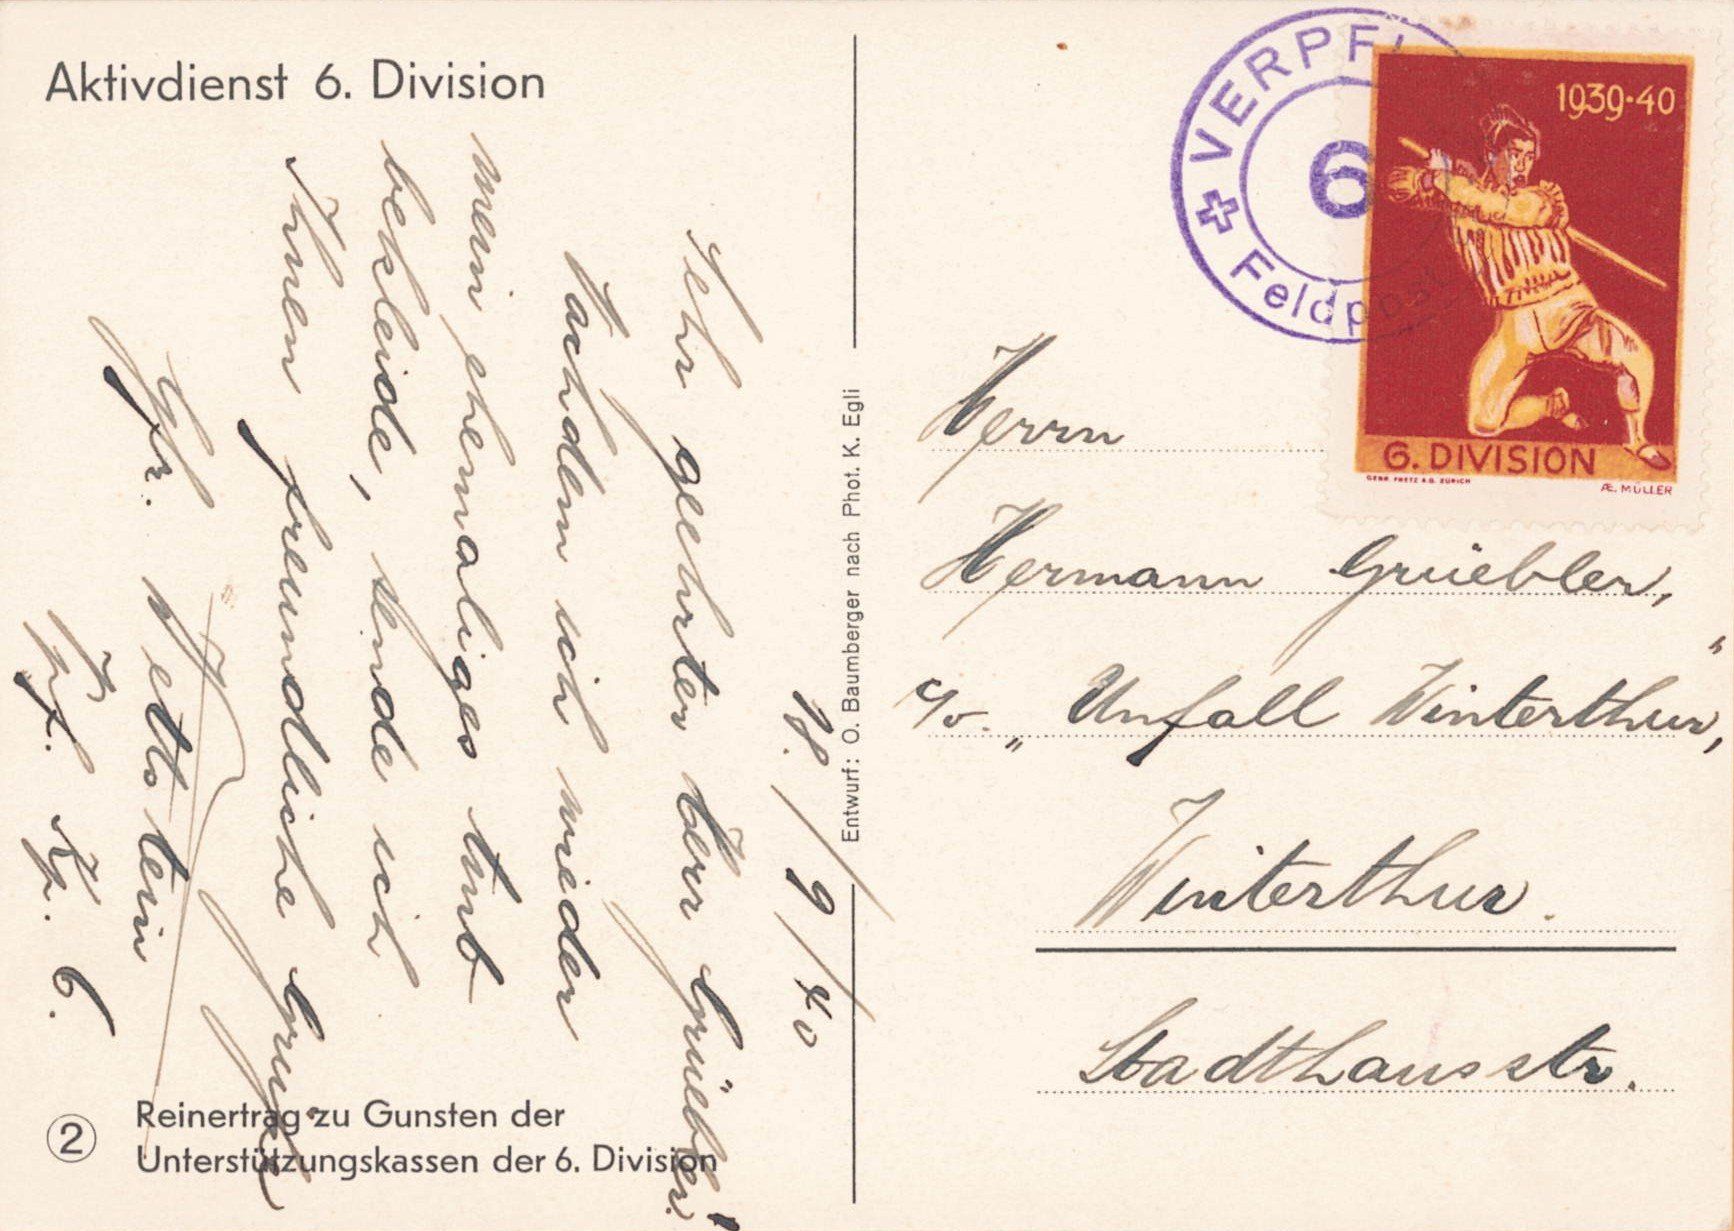 Aktivdienst 6. Division
18./9/40
Sehr geehrter Herr Grüebler!
Nachdem ich wieder
mein ehemaliges Amt
bekleide, sende ich
Ihnen freundliche Grüsse
Gfr. Wettstein
Vpf. Kp. 6.
2
Reinertrag zu Gunsten der
Unterstützungskassen der 6. Division
Entwurf: O. Baumberger nach Phot. K. Egli
VERPFL
6
Feldpost
1939·40
6. DIVISION
GEBR. FRETZ A.G. ZÜRICH
Æ. MÜLLER
Herrn
Hermann Grüebler,
c/o. „Unfall Winterthur",
Winterthur.
Stadthausstr.